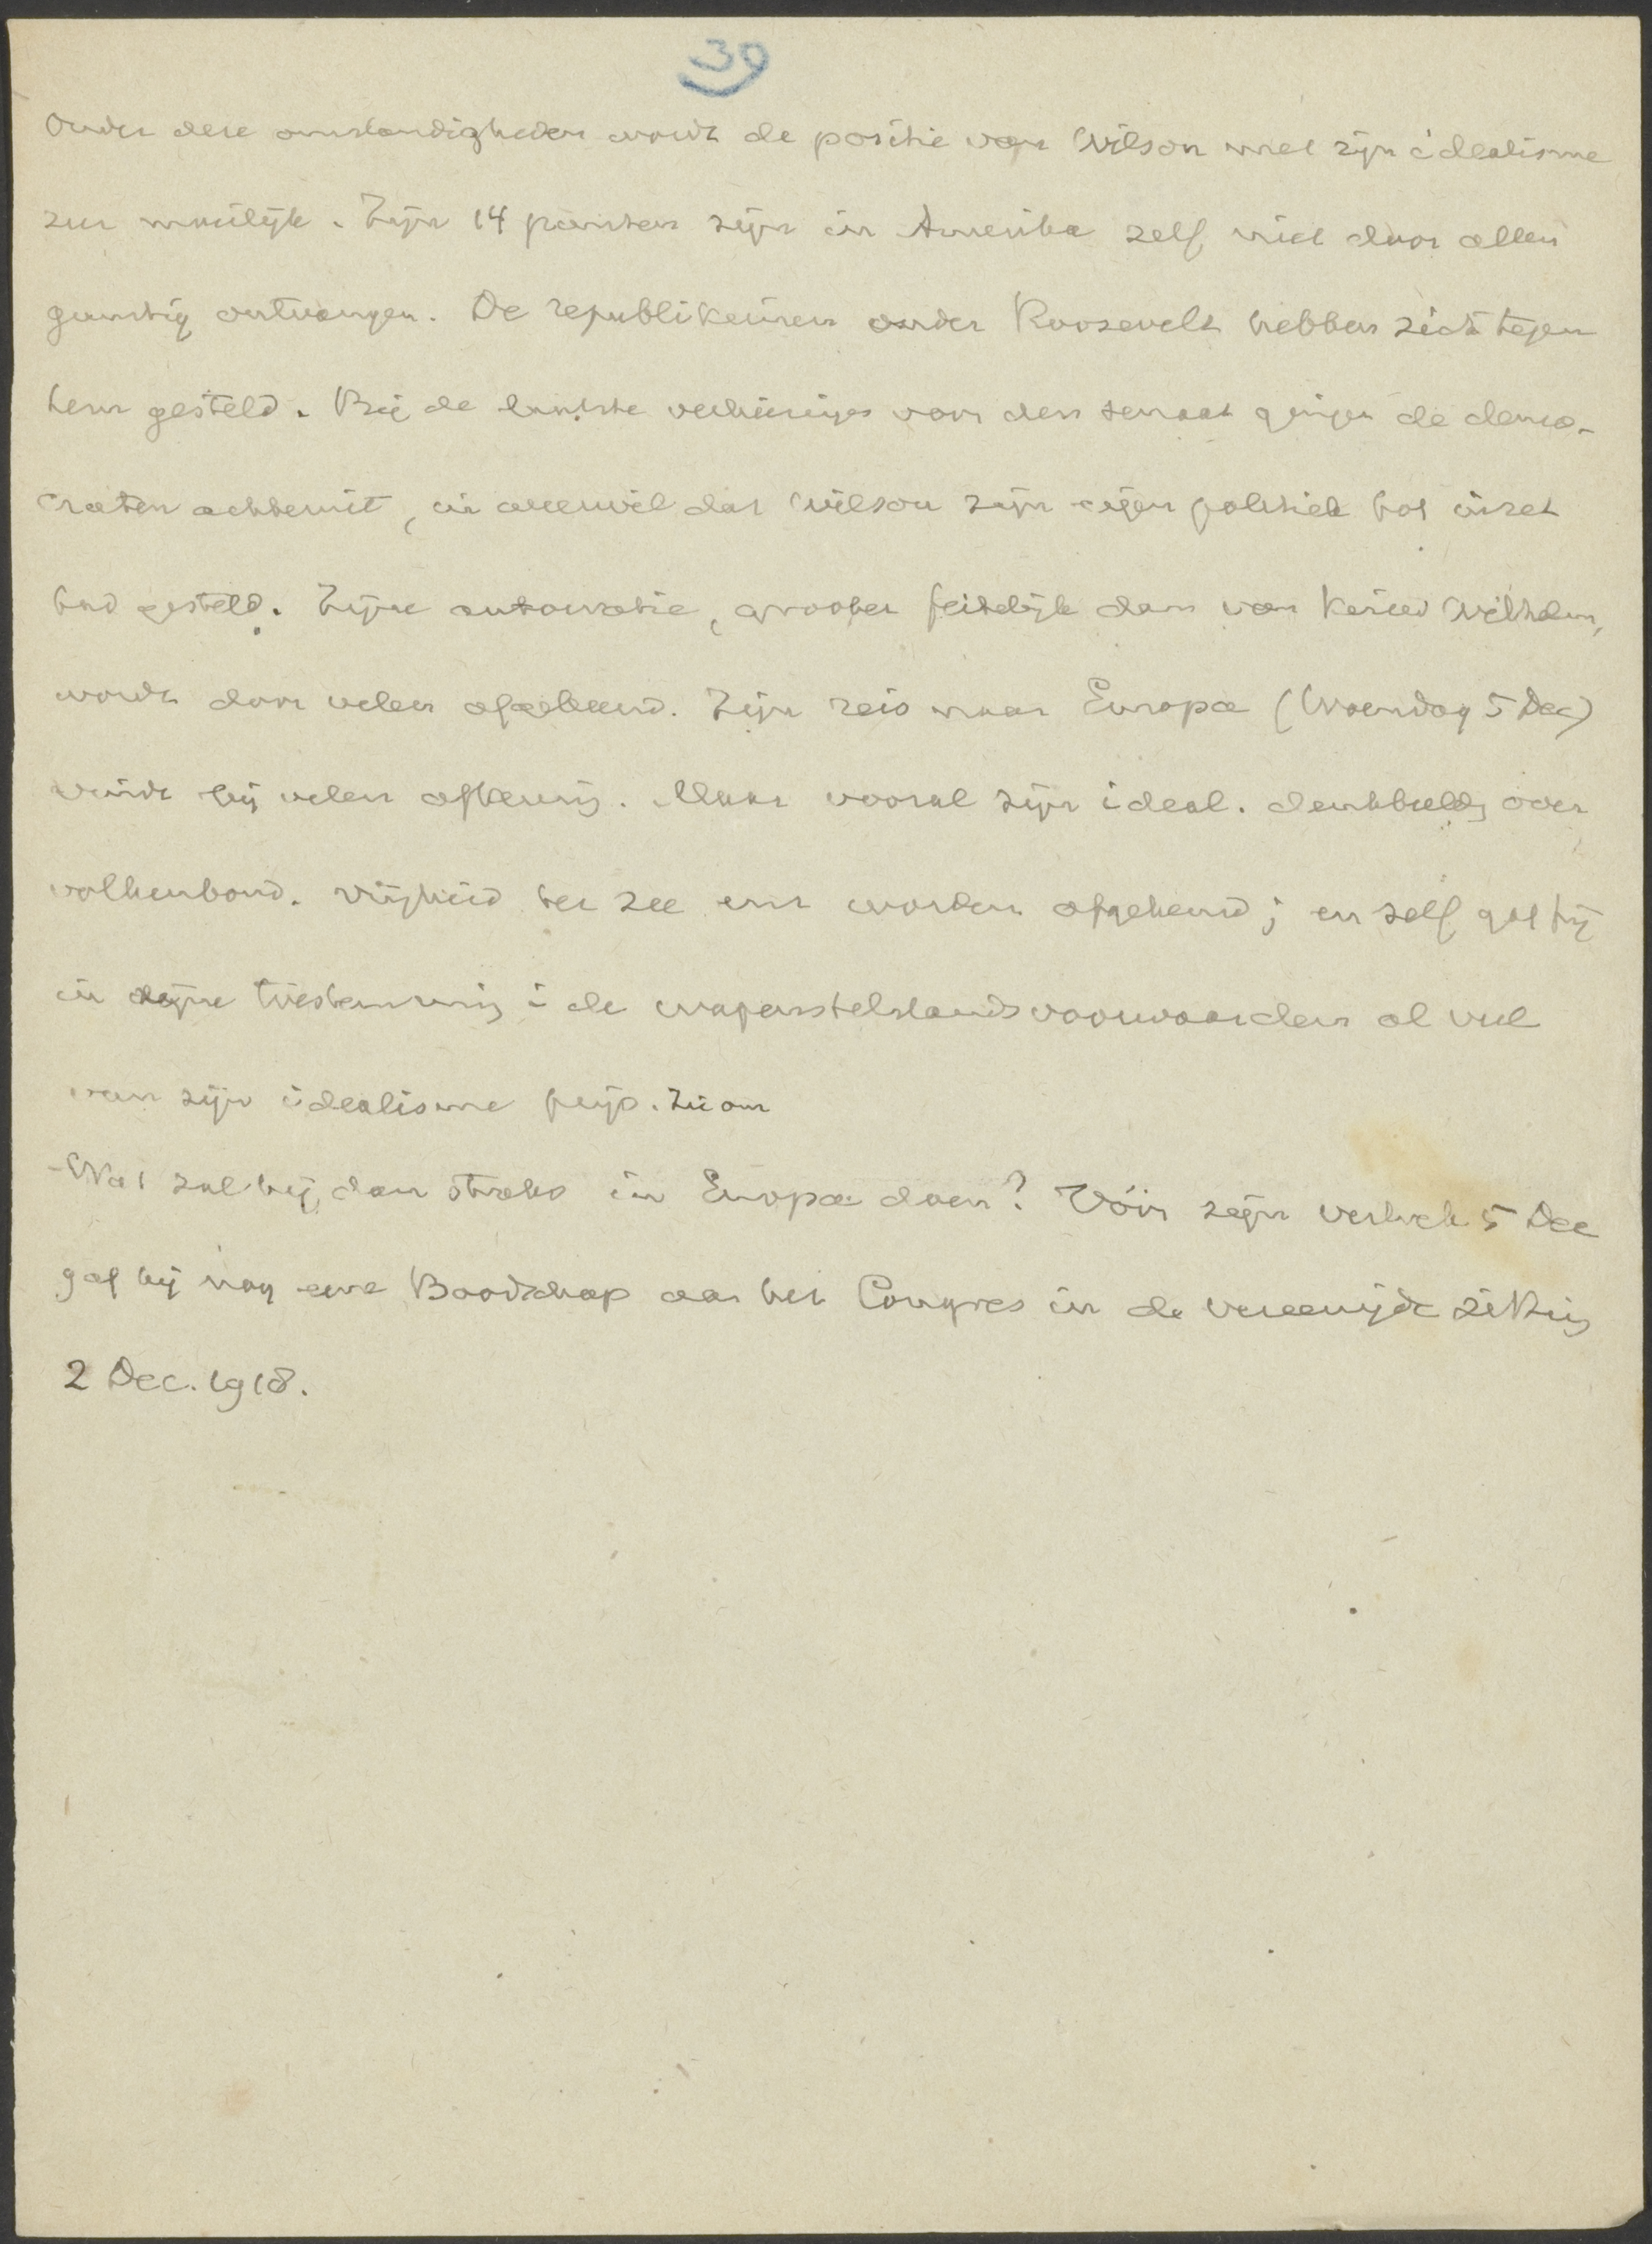 39
Onder deze omstandigheden wordt de positie van Wilson met zijn idealisme
zeer moeilijk. Zijn 14 punten zijn in Amerika zelf niet door allen
gunstig ontvangen. De republikeinen onder Roosevelt hebben zich tegen
hem gesteld. Bij de laatste verkiezingen voor den senaat gingen de demo-
craten achteruit, in weerwil dat Wilson zijn eigen politiek tot inzet
had gesteld. Zijne autocratie, grooter feitelijk dan van Keizer Wilhelm,
wordt door velen afgekeurd. Zijn reis naar Europa (Woensdag 5 Dec)
vindt bij velen afkeuring. Maar vooral zijn ideal. denkbeeld over
volkenbond. vrijheid ter zee enz worden afgekeurd; en zelf gaf hij
in zijne toestemming i de wapenstilstandsvoorwaarden al veel
van zijn idealisme prijs. Zie om
Wat zal hij dan straks in Europa doen? Vóór zijn vertrek 5 Dec
gaf hij nog eene Boodschap aan het Congres in de vereenigde zitting
2 Dec. 1918.